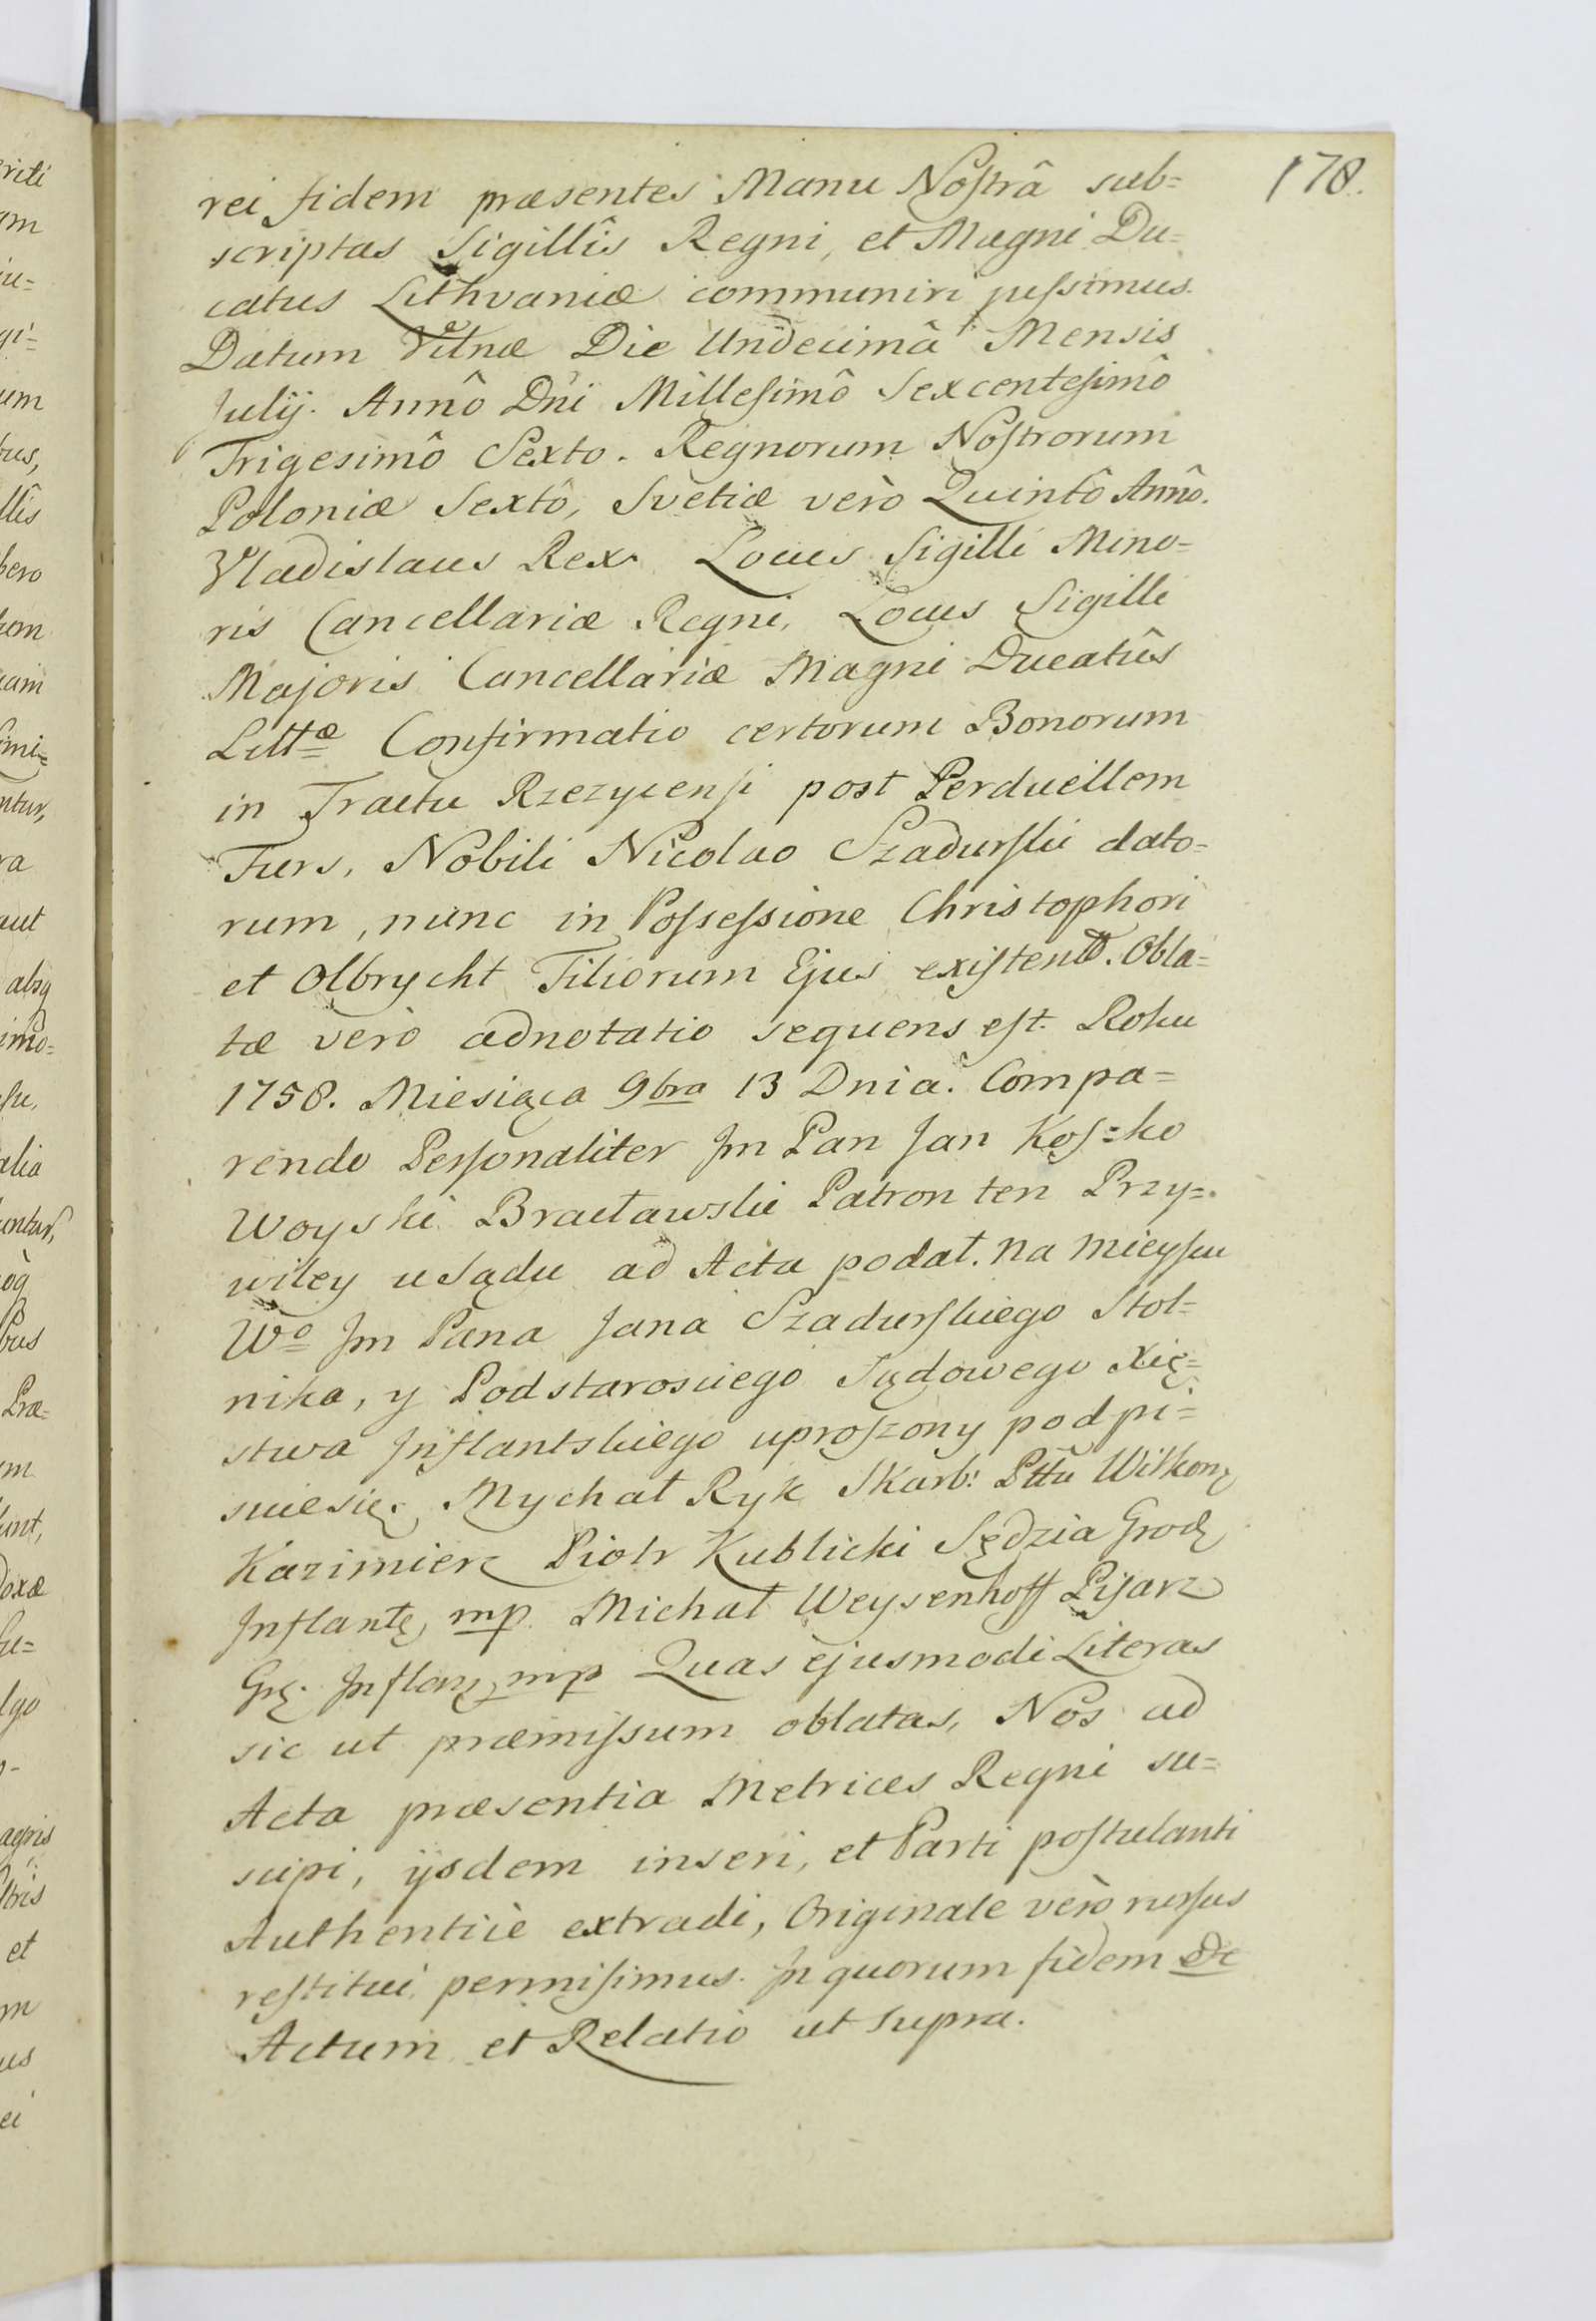 178.
rei fidem præsentes Manu Nostrâ sub=
scriptas Sigillîs Regni, et Magni Du=
catus Lithvaniæ communiri jussimus.
Datum Vilnæ Die Undecimâ Mensis
Julij. Annô Dni Millesimô Sexcentesimô
Trigesimô Sexto. Regnorum Nostrorum
Poloniæ Sextô, Svetiæ verò Quintô Annô.
Vladislaus Rex. Locus Sigilli Mino=
ris Cancellariæ Regni, Locus Sigilli
Majoris Cancellariæ Magni Ducatûs
Littæ Confirmatio certorum Bonorum
in Tractu Rzezycensi post Perduellem
Furs, Nobili Nicolao Szadurski dato=
rum, nunc in Possessione Christophori
et Olbrycht Filiorum Ejus existent. Obla=
tæ verò adnotatio sequens est. Roku
1758. Miesiąca 9bra 13 Dnia. Compa=
rendo Personaliter Jm Pan Jan Kos=ko
Woyski Bracławski Patron ten Przy=
wiley u Sądu ad Acta podał. Na mieyscu
Wo Jm Pana Jana Szadurskiego Stol=
nika, y Podstarosciego Sądowego Xię=
stwa Inflantskiego uproszony podpi=
suiesię. Mychał Ryk Skarb: Pttu Wiłkom
Kazimierz Piotr Kublicki Sędzia Grodz
Inflants, mp. Michał Weysenhoff Pisarz
Grz. Inflanz mp Quas ejusmodi Literas
sic ut præmissum oblatas, Nos ad
Acta præsentia Metrices Regni su=
scipi, ijsdem inseri, et Parti postulanti
Authenticè extradi, Originale verò rursus
restitui permisimus. In quorum fidem &c
Actum et Relatio ut supra.